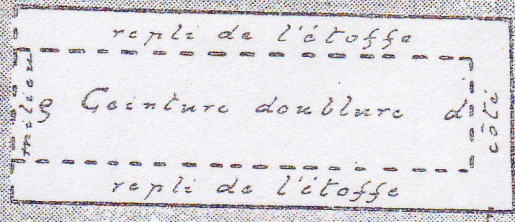 repli de l'étoffe
milieu
g Ceinture doublure d
côté
repli de l'étoffe